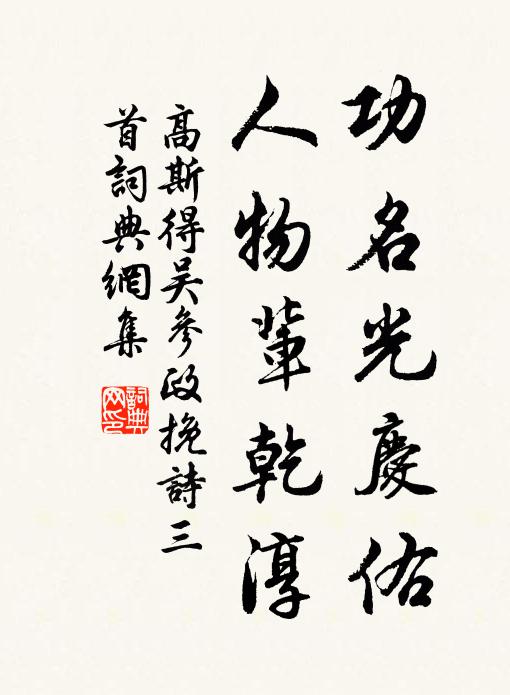 功名光慶佑
人物輩乾淳
高斯得吳參政挽詩三
首詞典網集
詞典網印